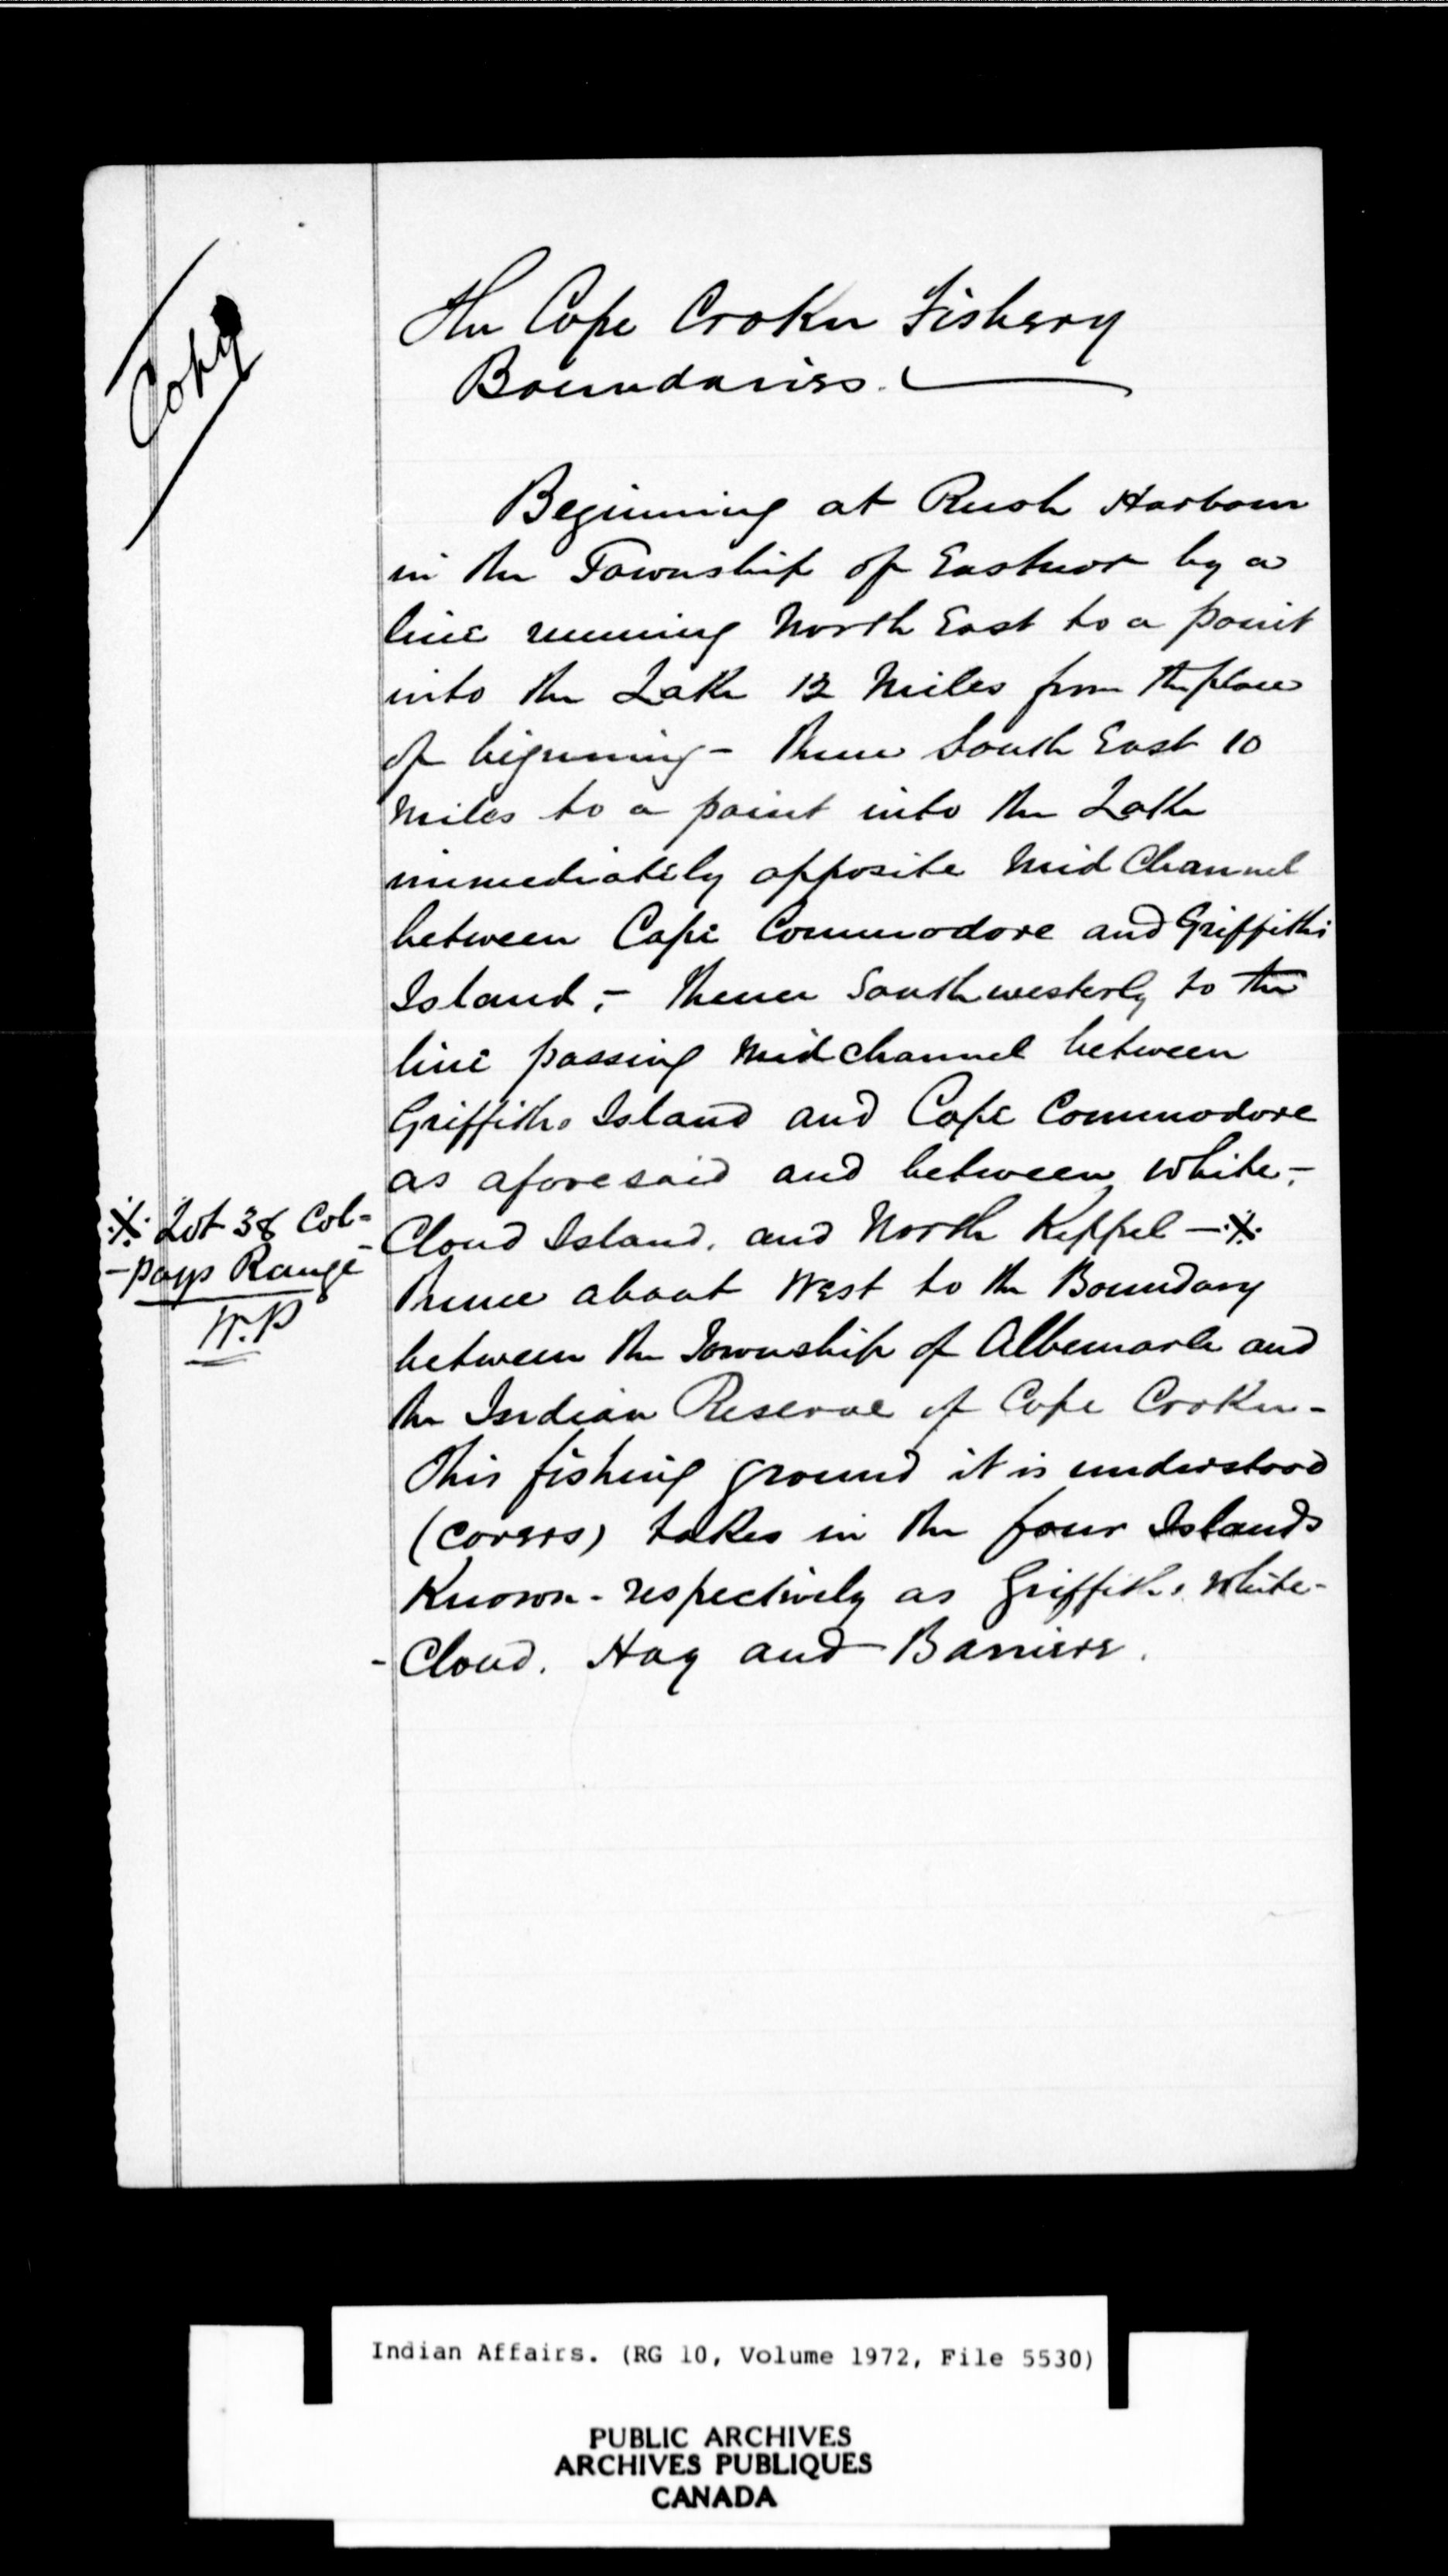 Copy
The Cape Croker Fishery
Boundaries.
Beginning at Rush Harbour
in the Township of Eastnor by a
line running North East to a point
into the Lake 12 Miles from the place
of beginning - thence South East 10
Miles to a point into the Lake
immediately opposite Mid Channel
between Cape Commodore and Griffiths
Island, - thence South westerly to the
line passing Mid channel between
Griffiths Island and Cape Commodore
as aforesaid and between White-
Cloud Island. and North Keppel -※
※ Lot 38 Col-
-poys Range
W.P
thence about West to the Boundary
between the Township of Albemarle and
the Indian Reserve of Cape Croker -
This fishing ground it is understood
(covers) takes in the four Islands
Known - respectively as Griffiths White-
-Cloud. Hay and Barriers.
Indian Affairs. (RG 10, Volume 1972, File 5530)
PUBLIC ARCHIVES
ARCHIVES PUBLIQUES
CANADA